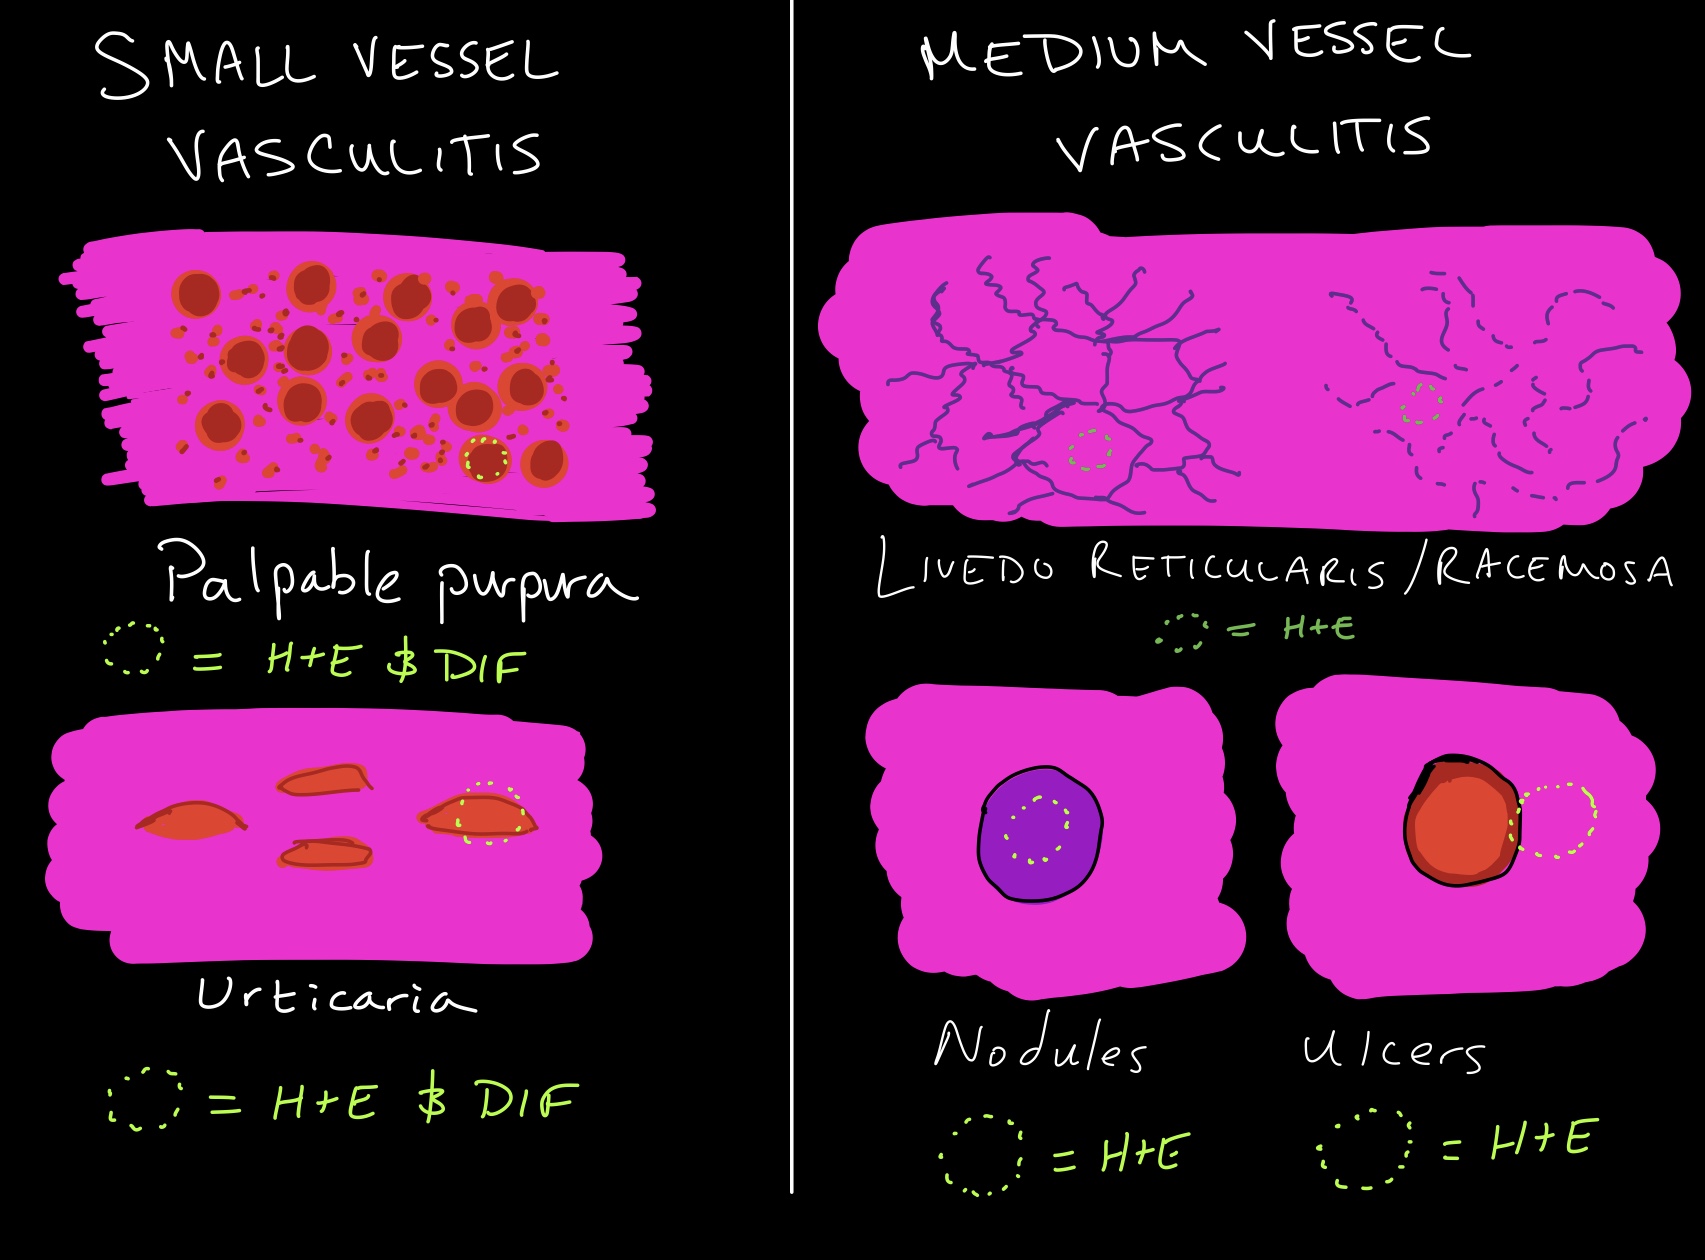 SMALL VESSEL
VASCULITIS
Palpable purpura
= H+E & DIF
Urticaria
= H+E & DIF
MEDIUM VESSEL
VASCULITIS
LIVEDO RETICULARIS/RACEMOSA
= H+E
Nodules
= H+E
Ulcers
= H+E